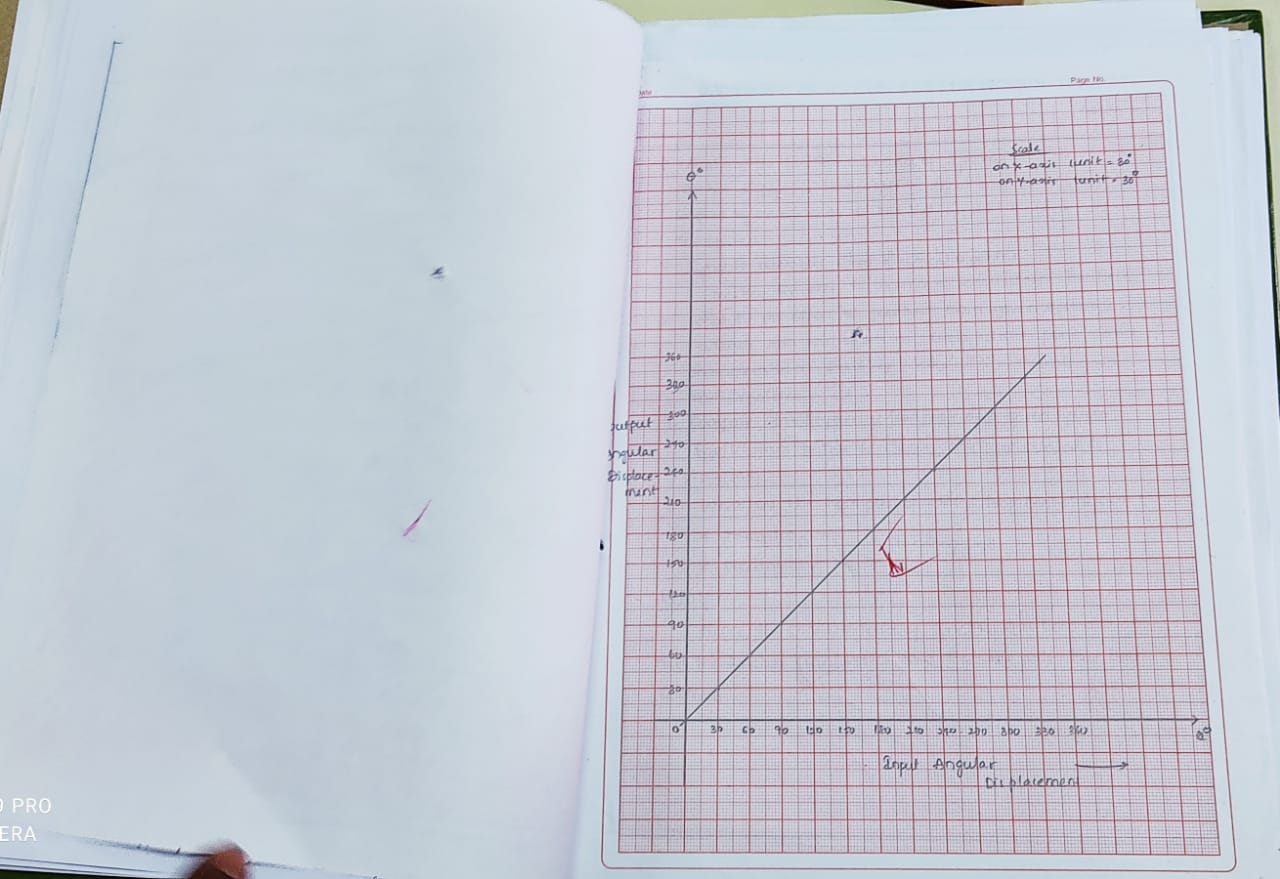 Page No.
Scale
on x-axis 1unit = 30°
on Y-axis 1unit = 30°
θ°
360
330
300
270
240
210
180
150
120
90
60
30
output
Angular
Displace-
ment
0 30 60 90 120 150 180 210 240 270 300 330 360
Input Angular
Displacement
PRO
ERA